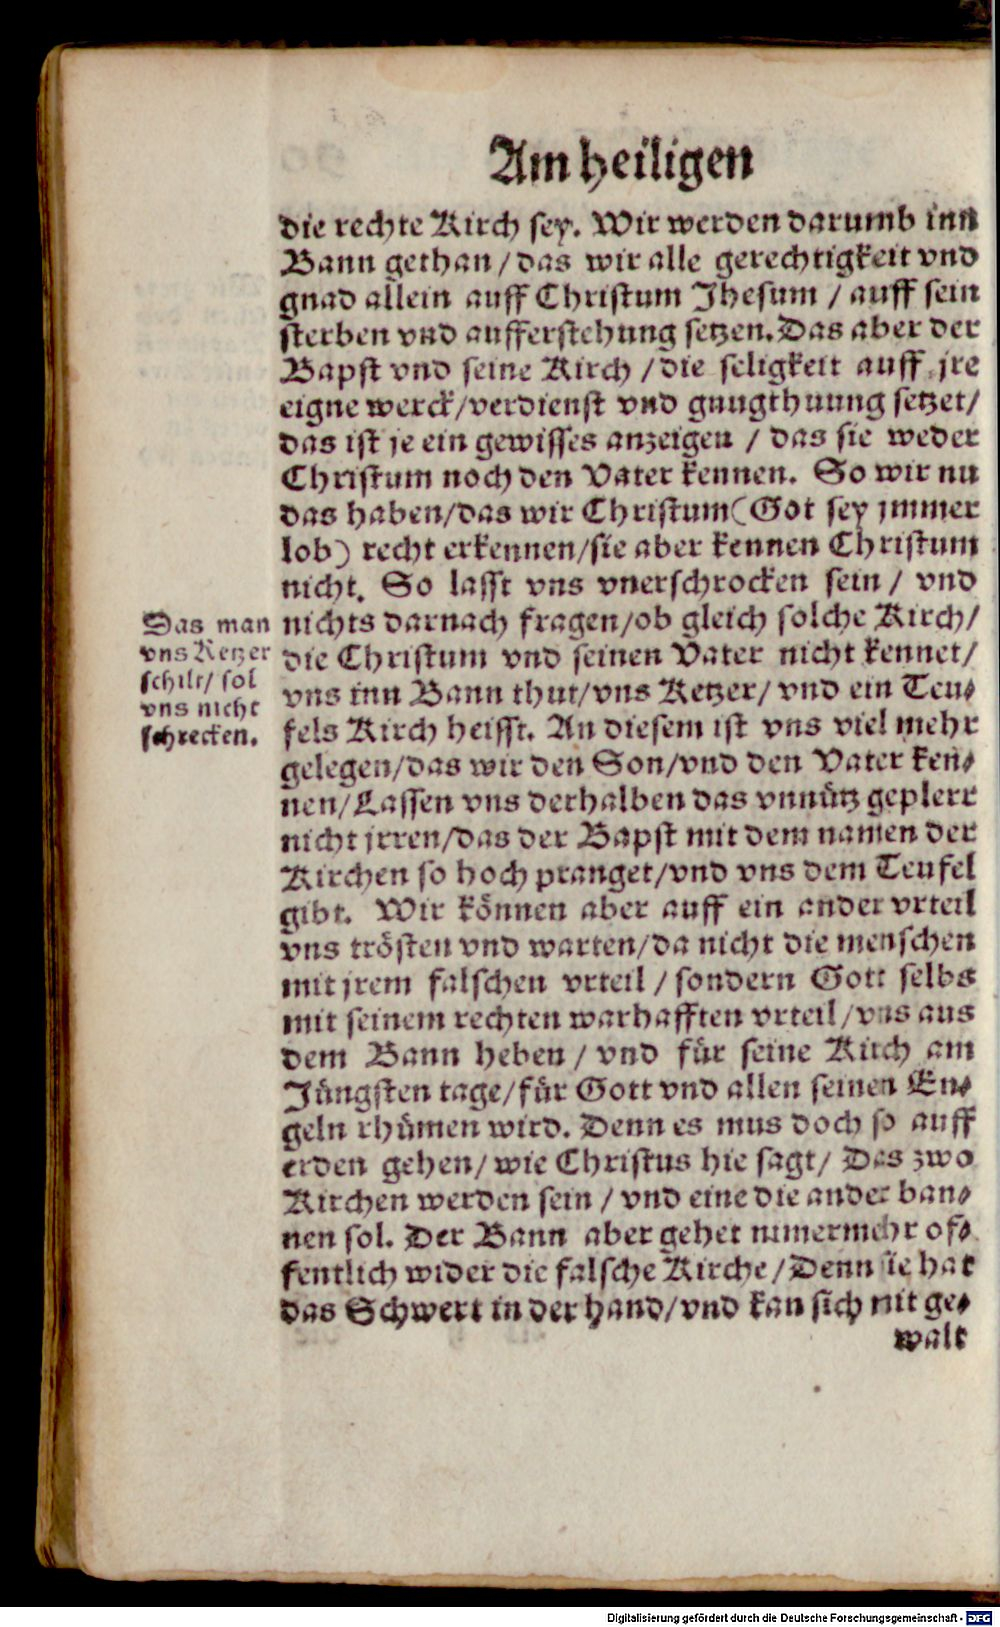 Am heiligen
die rechte Kirch sey. Wir werden darumb inn
Bann gethan/das wir alle gerechtigkeit vnd
gnad allein auff Christum Jhesum / auff sein
sterben vnd aufferstehung setzen. Das aber der
Bapst vnd seine Kirch /die seligkeit auff jre
eigne werck/verdienst vnd gnugthuung setzet/
das ist je ein gewisses anzeigen / das sie weder
Christum noch den Vater kennen. So wir nu
das haben/das wir Christum (Got sey jmmer
lob) recht erkennen/sie aber kennen Christum
nicht. So lasst vns vnerschrocken sein / vnd
nichts darnach fragen/ob gleich solche Kirch/
die Christum vnd seinen Vater nicht kennet/
vns inn Bann thut/vns Ketzer/ vnd ein Teu⸗
fels Kirch heisst. An diesem ist vns viel mehr
gelegen/das wir den Son/vnd den Vater ken⸗
nen/Lassen vns derhalben das vnnütz geplerr
nicht jrren/das der Bapst mit dem namen der
Kirchen so hoch pranget/vnd vns dem Teufel
gibt. Wir können aber auff ein ander vrteil
vns trösten vnd warten/da nicht die menschen
mit jrem falschen vrteil / sondern Gott selbs
mit seinem rechten warhafften vrteil/vns aus
dem Bann heben / vnd für seine Kirch am
Jüngsten tage/für Gott vnd allen seinen En⸗
geln rhümen wird. Denn es mus doch so auff
erden gehen/ wie Christus hie sagt/ Das zwo
Kirchen werden sein / vnd eine die ander ban⸗
nen sol. Der Bann aber gehet nimermehr of⸗
fentlich wider die falsche Kirche/Denn sie hat
das Schwert in der hand/vnd kan sich mit ge⸗
walt
Das man
vns Ketzer
schilt/ sol
vns nicht
schrecken.
Digitalisierung gefördert durch die Deutsche Forschungsgemeinschaft - DFG